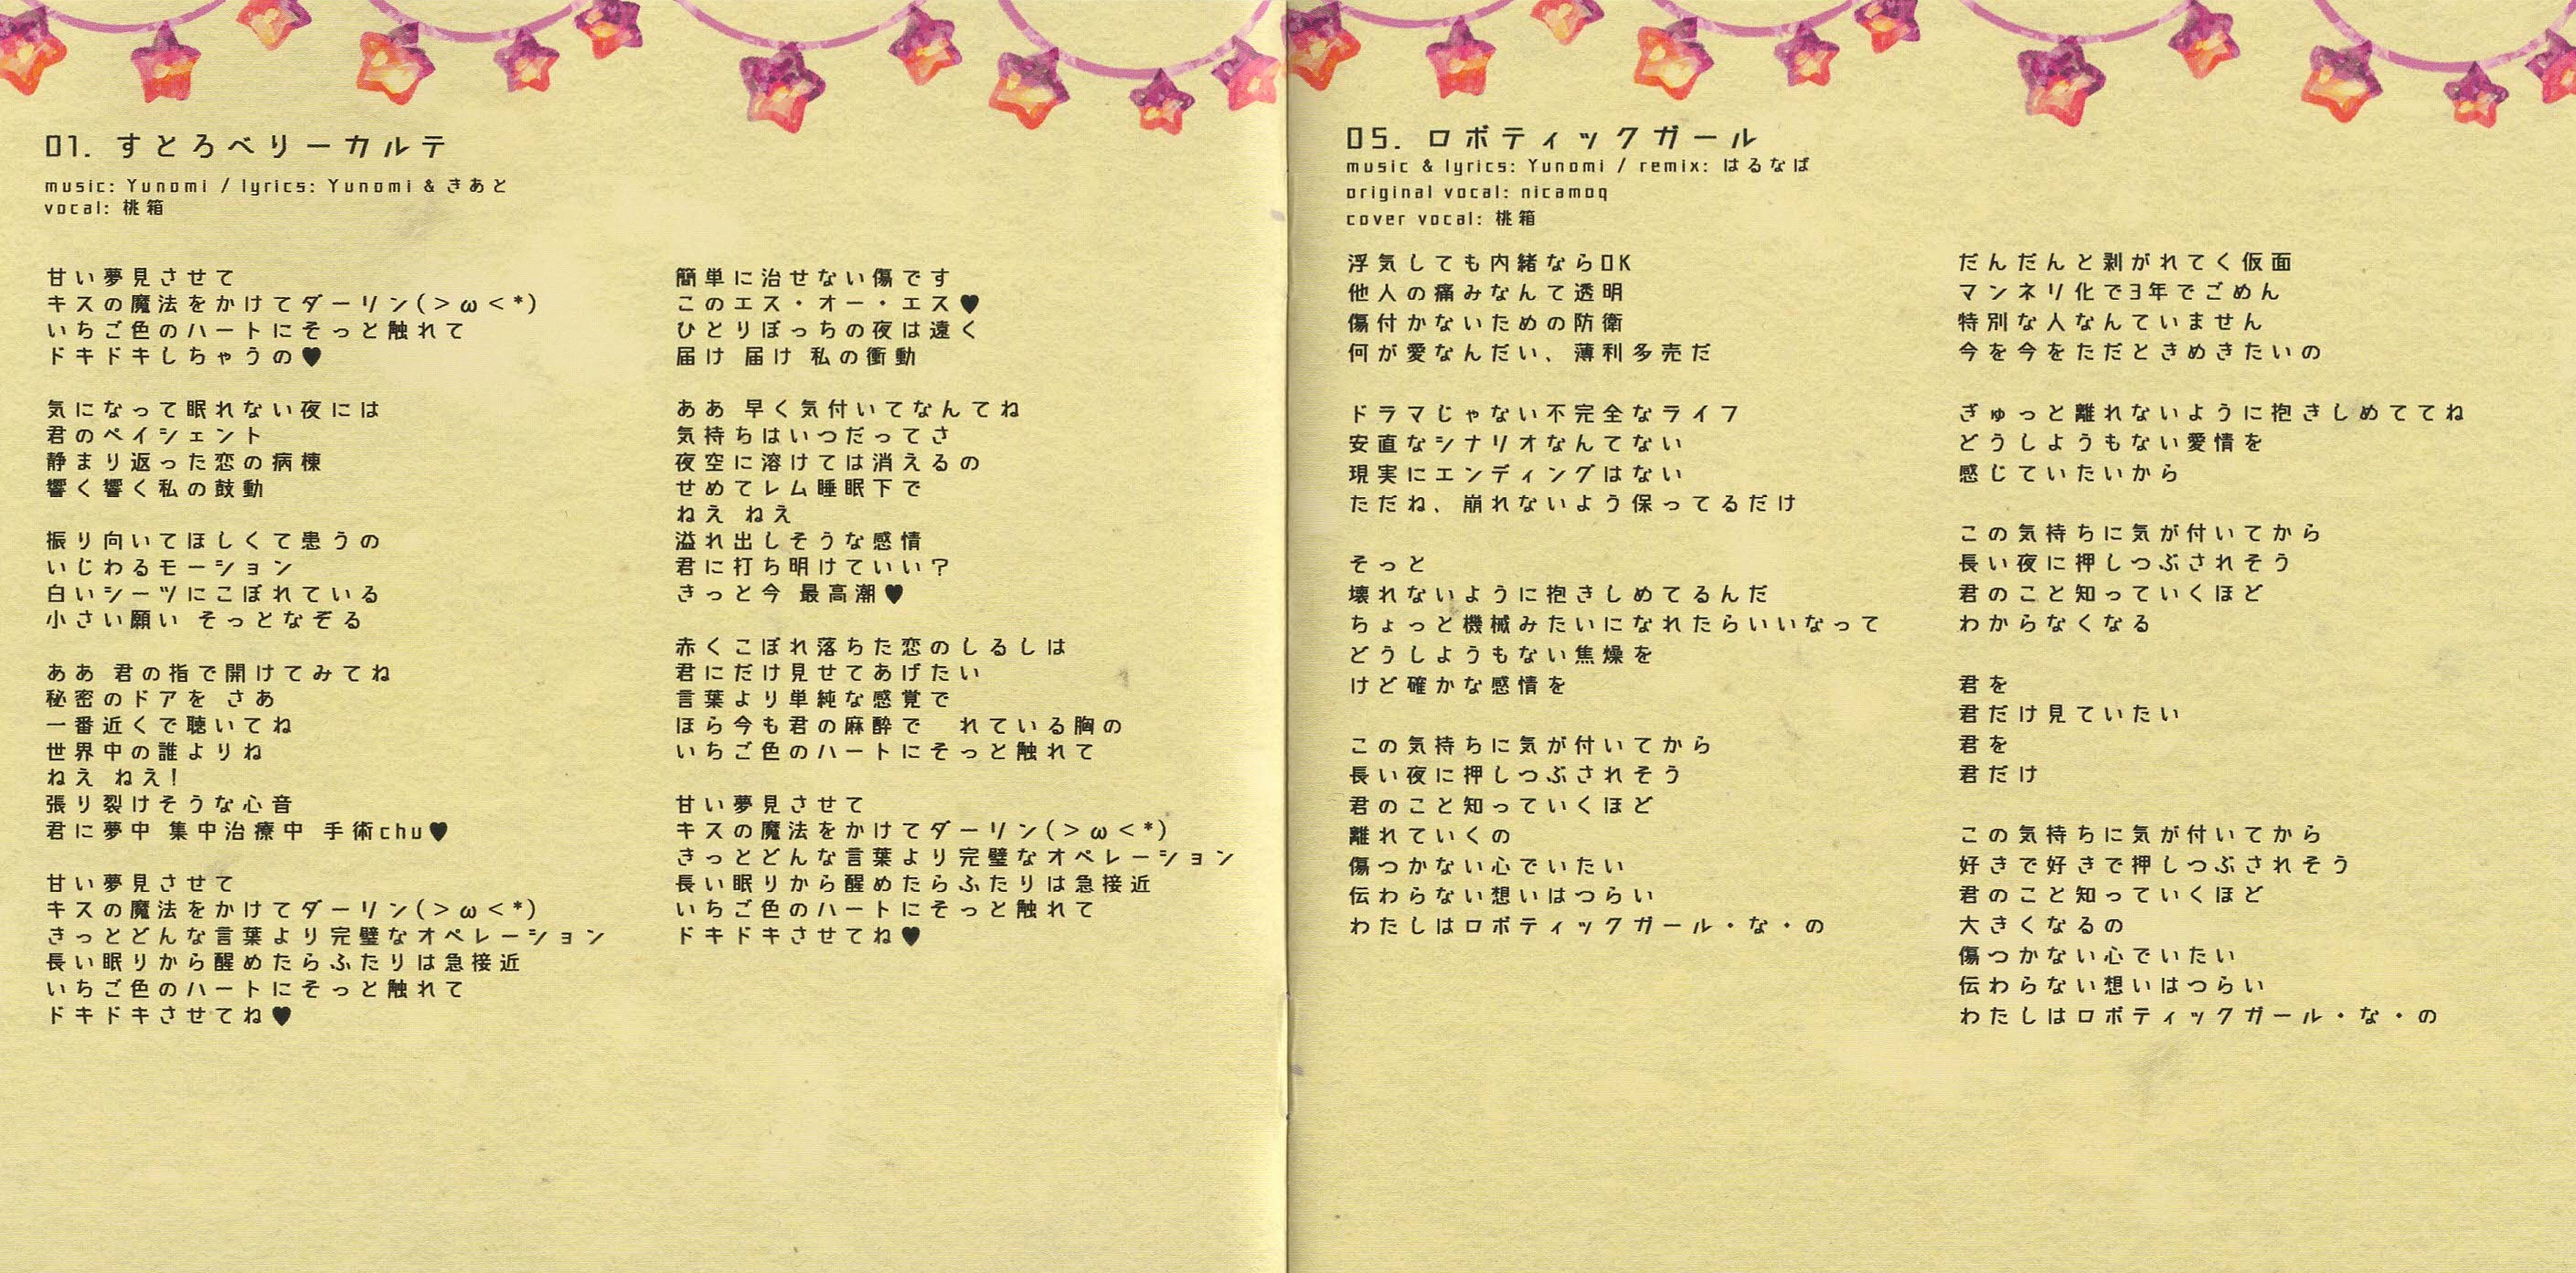 01. すとろベリーカルテ
music: Yunomi / lyrics: Yunomi & きあと
vocal: 桃箱
甘い夢見させて
キスの魔法をかけてダーリン(>ω<*)
いちご色のハートにそっと触れて
ドキドキしちゃうの♥
気になって眠れない夜には
君のペイシェント
静まり返った恋の病棟
響く響く私の鼓動
振り向いてほしくて患うの
いじわるモーション
白いシーツにこぼれている
小さい願い そっとなぞる
ああ 君の指で開けてみてね
秘密のドアを さあ
一番近くで聴いてね
世界中の誰よりね
ねえ ねえ!
張り裂けそうな心音
君に夢中 集中治療中 手術chu♥
甘い夢見させて
キスの魔法をかけてダーリン(>ω<*)
きっとどんな言葉より完璧なオペレーション
長い眠りから醒めたらふたりは急接近
いちご色のハートにそっと触れて
ドキドキさせてね♥
簡単に治せない傷です
このエス・オー・エス♥
ひとりぼっちの夜は遠く
届け 届け 私の衝動
ああ 早く気付いてなんてね
気持ちはいつだってさ
夜空に溶けては消えるの
せめてレム睡眠下で
ねえ ねえ
溢れ出しそうな感情
君に打ち明けていい?
きっと今 最高潮♥
赤くこぼれ落ちた恋のしるしは
君にだけ見せてあげたい
言葉より単純な感覚で
ほら今も君の麻酔で　れている胸の
いちご色のハートにそっと触れて
甘い夢見させて
キスの魔法をかけてダーリン(>ω<*)
きっとどんな言葉より完璧なオペレーション
長い眠りから醒めたらふたりは急接近
いちご色のハートにそっと触れて
ドキドキさせてね♥
05. ロボティックガール
music & lyrics: Yunomi / remix: はるなば
original vocal: nicamoq
cover vocal: 桃箱
浮気しても内緒ならOK
他人の痛みなんて透明
傷付かないための防衛
何が愛なんだい、薄利多売だ
ドラマじゃない不完全なライフ
安直なシナリオなんてない
現実にエンディングはない
ただね、崩れないよう保ってるだけ
そっと
壊れないように抱きしめてるんだ
ちょっと機械みたいになれたらいいなって
どうしようもない焦燥を
けど確かな感情を
この気持ちに気が付いてから
長い夜に押しつぶされそう
君のこと知っていくほど
離れていくの
傷つかない心でいたい
伝わらない想いはつらい
わたしはロボティックガール・な・の
だんだんと剥がれてく仮面
マンネリ化で3年でごめん
特別な人なんていません
今を今をただときめきたいの
ぎゅっと離れないように抱きしめててね
どうしようもない愛情を
感じていたいから
この気持ちに気が付いてから
長い夜に押しつぶされそう
君のこと知っていくほど
わからなくなる
君を
君だけ見ていたい
君を
君だけ
この気持ちに気が付いてから
好きで好きで押しつぶされそう
君のこと知っていくほど
大きくなるの
傷つかない心でいたい
伝わらない想いはつらい
わたしはロボティックガール・な・の